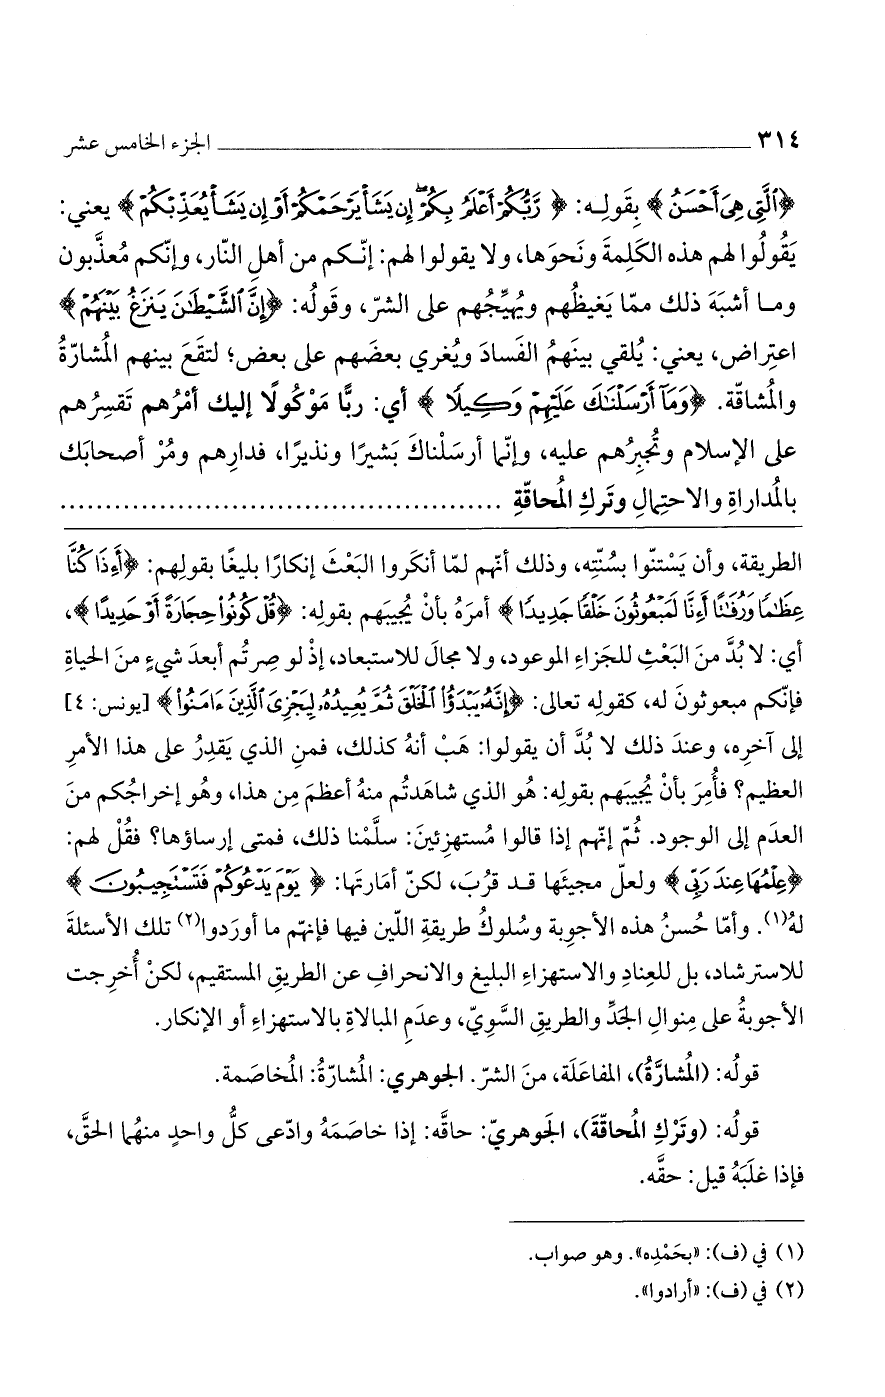 ٣١٤ ــــــــــــــــــــــــــــــــــــــــــــــــــــــــ الجزء الخامس عشر
﴿ٱلَّتِى هِىَ أَحۡسَنُ﴾ بِقَولِـه: ﴿رَّبُّكُمۡ أَعۡلَمُ بِكُمۡۖ إِن يَشَأۡ يَرۡحَمۡكُمۡ أَوۡ إِن يَشَأۡ يُعَذِّبۡكُمۡ﴾ يعني:
يَقُولُوا لهم هذه الكَلِمةَ ونَحوَها، ولا يقولوا لهم: إنّـكم من أهلِ النّار، وإنّكم مُعذَّبون
ومـا أشبَهَ ذلك ممّا يَغيظُهم ويُهيِّجُهم على الشرّ، وقَولُه: ﴿إِنَّ ٱلشَّيۡطَٰنَ يَنزَغُ بَيۡنَهُمۡ﴾
اعتِراض، يعني: يُلقي بينَهمُ الفَسادَ ويُغري بعضَهم على بعض؛ لتقَعَ بينهم المُشارّةُ
والمُشاقّة. ﴿وَمَآ أَرۡسَلۡنَٰكَ عَلَيۡهِمۡ وَكِيلًا﴾ أي: ربًّا مَوْكُولًا إليك أمْرُهم تَقسِرُهم
على الإسلام وتُجبِرُهم عليه، وإنّما أرسَلْناكَ بَشيرًا ونذيرًا، فدارِهم ومُرْ أصحابَك
بالمُداراةِ والاحتِمالِ وتَركِ المُحاقّةِ ................................................
الطريقة، وأن يَسْتنّوا بسُنّتِه، وذلك أنّهم لمّا أنكَروا البَعْثَ إنكارًا بليغًا بقولِهم: ﴿أَءِذَا كُنَّا
عِظَٰمًا وَرُفَٰتًا أَءِنَّا لَمَبۡعُوثُونَ خَلۡقًا جَدِيدًا﴾ أمرَهُ بأنْ يُجيبَهم بقولِه: ﴿قُلۡ كُونُواْ حِجَارَةً أَوۡ حَدِيدًا﴾،
أي: لا بُدَّ منَ البَعْثِ للجَزاءِ الموعود، ولا مجالَ للاستبعاد، إذْ لو صِرتُم أبعدَ شيءٍ منَ الحياةِ
فإنّكم مبعوثونَ له، كقولِه تعالى: ﴿إِنَّهُۥ يَبۡدَؤُاْ ٱلۡخَلۡقَ ثُمَّ يُعِيدُهُۥ لِيَجۡزِىَ ٱلَّذِينَ ءَامَنُواْ﴾ [يونس: ٤]
إلى آخرِه، وعندَ ذلك لا بُدَّ أن يقولوا: هَبْ أنهُ كذلك، فمنِ الذي يَقدِرُ على هذا الأمرِ
العظيم؟ فأُمِرَ بأنْ يُجيبَهم بقولِه: هُو الذي شاهَدتُم منهُ أعظمَ مِن هذا، وهُو إخراجُكم منَ
العدَم إلى الوجود. ثُمّ إنّهم إذا قالوا مُستهزِئينَ: سلَّمْنا ذلك، فمتى إرساؤها؟ فقُلْ لهم:
﴿عِلۡمُهَا عِندَ رَبِّى﴾ ولعلّ مجيئَها قـد قرُبَ، لكنّ أمَارتَها: ﴿يَوۡمَ يَدۡعُوكُمۡ فَتَسۡتَجِيبُونَ﴾
لهُ(١). وأمّا حُسنُ هذه الأجوِبة وسُلوكُ طريقةِ اللّين فيها فإنهّم ما أورَدوا(٢) تلك الأسئلةَ
للاسترشاد، بل للعِنادِ والاستهزاءِ البليغ والانحرافِ عن الطريقِ المستقيم، لكنْ أُخرِجت
الأجوبةُ على مِنوالِ الجَدِّ والطريقِ السَّويّ، وعدَمِ المبالاةِ بالاستهزاءِ أو الإنكار.
قولُه: (المُشارّةُ)، المفاعَلَة، منَ الشرّ. الجوهري: المُشارّةُ: المُخاصَمة.
قولُه: (وتَرْكِ المُحاقّةَ)، الجَوهريّ: حاقّه: إذا خاصَمَهُ وادّعى كلُّ واحدٍ منهُما الحقَّ،
فإذا غلَبَهُ قيل: حقَّه.
(١) في (ف): «بحَمْدِه». وهو صواب.
(٢) في (ف): «أرادوا».